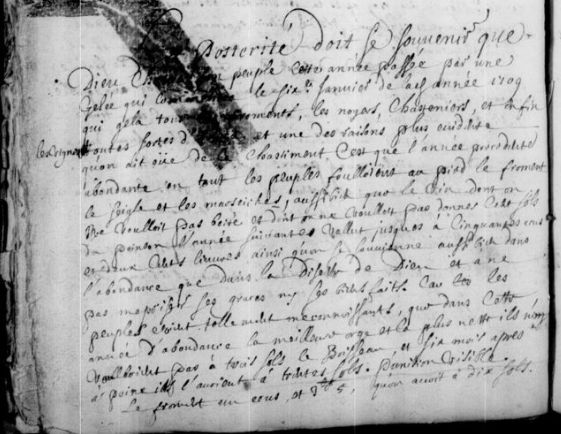 Posterité doit se souvenir que
Dieu son peuple cette année passée par une
Gelée qui le six.e Janvier de lad année 1709
qui gela touts froments, les noyers, Chasteniers, et enfin
toutes sortes d' et une des raisons plus evidente
les vignes
quon ait oüe de Chastiment C'est que l'année precedente
abondante en tout les peuples foulloient au pied le froment
le seigle et les marseiches, aussi bien que le vin dont on
ne voulloit pas boire et dont on ne voulloit pas donner Cent sols
du poinson l'année suivante Vallut jusques à Cinquantes
et deux livres ainsi qu'on se souvienne aussi bien dans
l'abondance que dans la Disette de Dieu et a ne
pas mespriser ses graces ny ses bienfaits Car les
peuples tellement meconnoissants, que dans Cette
année D'abondance la meilleure orge et la plus nette ils n'en
voulloient pas à trois sols le Boisseau et six mois apres
a peine ils l'auroient à trentes sols. punition visible
Le froment un ecus, et 5 s, qu'on avoit à dix sols.